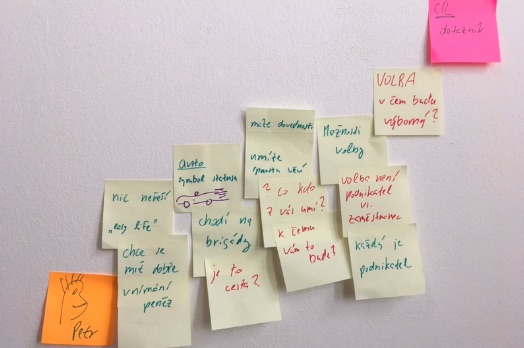 CÍL
dotazník
VOLBA
v čem budu
výborný?
moje dovednosti
umíte
spoustu věcí
Možnosti
volby
auto
symbol statusu
? co kdo
z vás umí?
volba není
podnikatel
vs.
zaměstnanec
nic neřeší
„easy life"
chodí na
brigády
k čemu
vám to
bude?
každý je
podnikatel
chce se
mít dobře
vnímání
peněz
je to
cesta?
Petr